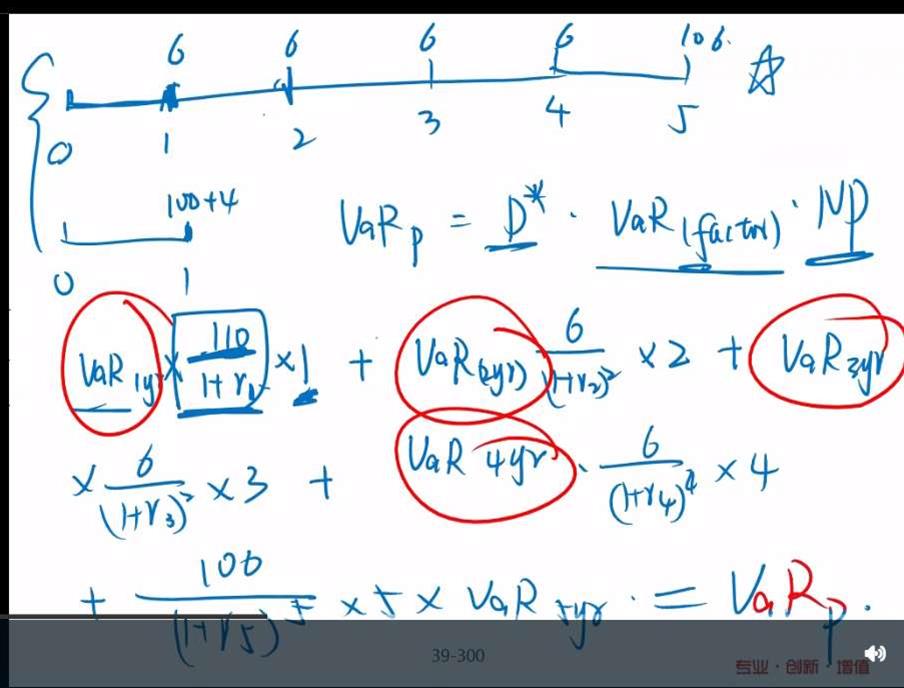 6 6 6 6 106.
0 1 2 3 4 5
100+4
0 1
VaR_p = D* · VaR(factor) · NP
VaR_1yr × 110/(1+r_1) × 1 + VaR(2yr) 6/(1+r_2)^2 × 2 + VaR_3yr
× 6/(1+r_3)^3 × 3 + VaR 4yr · 6/(1+r_4)^4 × 4
+ 106/(1+r_5)^5 × 5 × VaR_5yr · = VaR_p.
39-300
专业·创新·增值